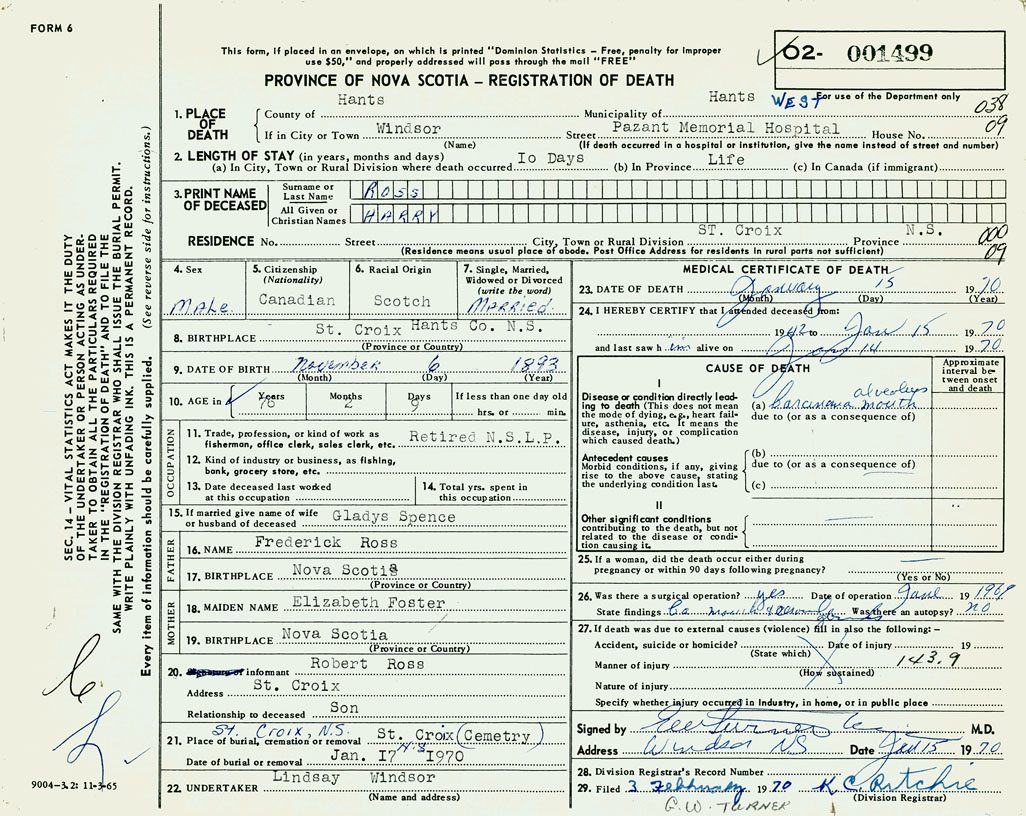 FORM 6
This form, if placed in an envelope, on which is printed "Dominion Statistics – Free, penalty for improper
use $50," and properly addressed will pass through the mail "FREE"
O2- 001499
PROVINCE OF NOVA SCOTIA – REGISTRATION OF DEATH
For use of the Department only
1. PLACE OF DEATH
County of Hants Municipality of Hants WEST 038
If in City or Town Windsor Street Pazant Memorial Hospital House No. 09
(Name) (If death occurred in a hospital or institution, give the name instead of street and number)
2. LENGTH OF STAY (in years, months and days)
(a) In City, Town or Rural Division where death occurred Io Days (b) In Province Life (c) In Canada (if immigrant)
3. PRINT NAME OF DECEASED
Surname or Last Name ROSS
All Given or Christian Names HARRY
RESIDENCE No. Street City, Town or Rural Division ST. Croix Province N.S. 000 09
(Residence means usual place of abode. Post Office Address for residents in rural parts not sufficient)
4. Sex MALe
5. Citizenship (Nationality) Canadian
6. Racial Origin Scotch
7. Single, Married, Widowed or Divorced (write the word) MARRied
8. BIRTHPLACE St. Croix Hants Co. N.S.
(Province or Country)
9. DATE OF BIRTH November 6 1893
(Month) (Day) (Year)
10. AGE in Years 76 Months 2 Days 9 If less than one day old
hrs. or min.
OCCUPATION
11. Trade, profession, or kind of work as
fisherman, office clerk, sales clerk, etc. Retired N.S.L.P.
12. Kind of industry or business, as fishing,
bank, grocery store, etc.
13. Date deceased last worked
at this occupation
14. Total yrs. spent in
this occupation
15. If married give name of wife
or husband of deceased Gladys Spence
FATHER
16. NAME Frederick Ross
17. BIRTHPLACE Nova Scotia
(Province or Country)
MOTHER
18. MAIDEN NAME Elizabeth Foster
19. BIRTHPLACE Nova Scotia
(Province or Country)
20. informant Robert Ross
Address St. Croix
Relationship to deceased Son
St. Croix, N.S.
21. Place of burial, cremation or removal St. Croix (Cemetry)
Date of burial or removal Jan. I7 1970
22. UNDERTAKER Lindsay Windsor
(Name and address)
MEDICAL CERTIFICATE OF DEATH
23. DATE OF DEATH January 15 1970
(Month) (Day) (Year)
24. I HEREBY CERTIFY that I attended deceased from:
1942 to Jan 15 1970
and last saw him alive on Jan 14 1970
CAUSE OF DEATH
Approximate interval between onset and death
I
Disease or condition directly leading to death (This does not mean the mode of dying, e.g., heart failure, asthenia, etc. It means the disease, injury, or complication which caused death.)
alveolus
(a) Carcinoma mouth
due to (or as a consequence of)
Antecedent causes
Morbid conditions, if any, giving rise to the above cause, stating the underlying condition last.
(b)
due to (or as a consequence of)
(c)
II
Other significant conditions
contributing to the death, but not related to the disease or condition causing it.
25. If a woman, did the death occur either during
pregnancy or within 90 days following pregnancy?
(Yes or No)
26. Was there a surgical operation? yes Date of operation June 1969
State findings Ca mouth Was there an autopsy? no
27. If death was due to external causes (violence) fill in also the following: –
Accident, suicide or homicide? Date of injury 19
(State which)
Manner of injury 143.9
(How sustained)
Nature of injury
Specify whether injury occurred in Industry, in home, or in public place
Signed by M.D.
Address Windsor NS Date Jan 15 1970
28. Division Registrar's Record Number
29. Filed 3 February 1970 K C Ritchie
(Division Registrar)
G.W. TURNER
SEC. 14 – VITAL STATISTICS ACT MAKES IT THE DUTY
OF THE UNDERTAKER OR PERSON ACTING AS UNDER-
TAKER TO OBTAIN ALL THE PARTICULARS REQUIRED
IN THE "REGISTRATION OF DEATH" AND TO FILE THE
SAME WITH THE DIVISION REGISTRAR WHO SHALL ISSUE THE BURIAL PERMIT.
WRITE PLAINLY WITH UNFADING INK. THIS IS A PERMANENT RECORD.
Every item of information should be carefully supplied. (See reverse side for instructions.)
9004-3.2: 11-3-65